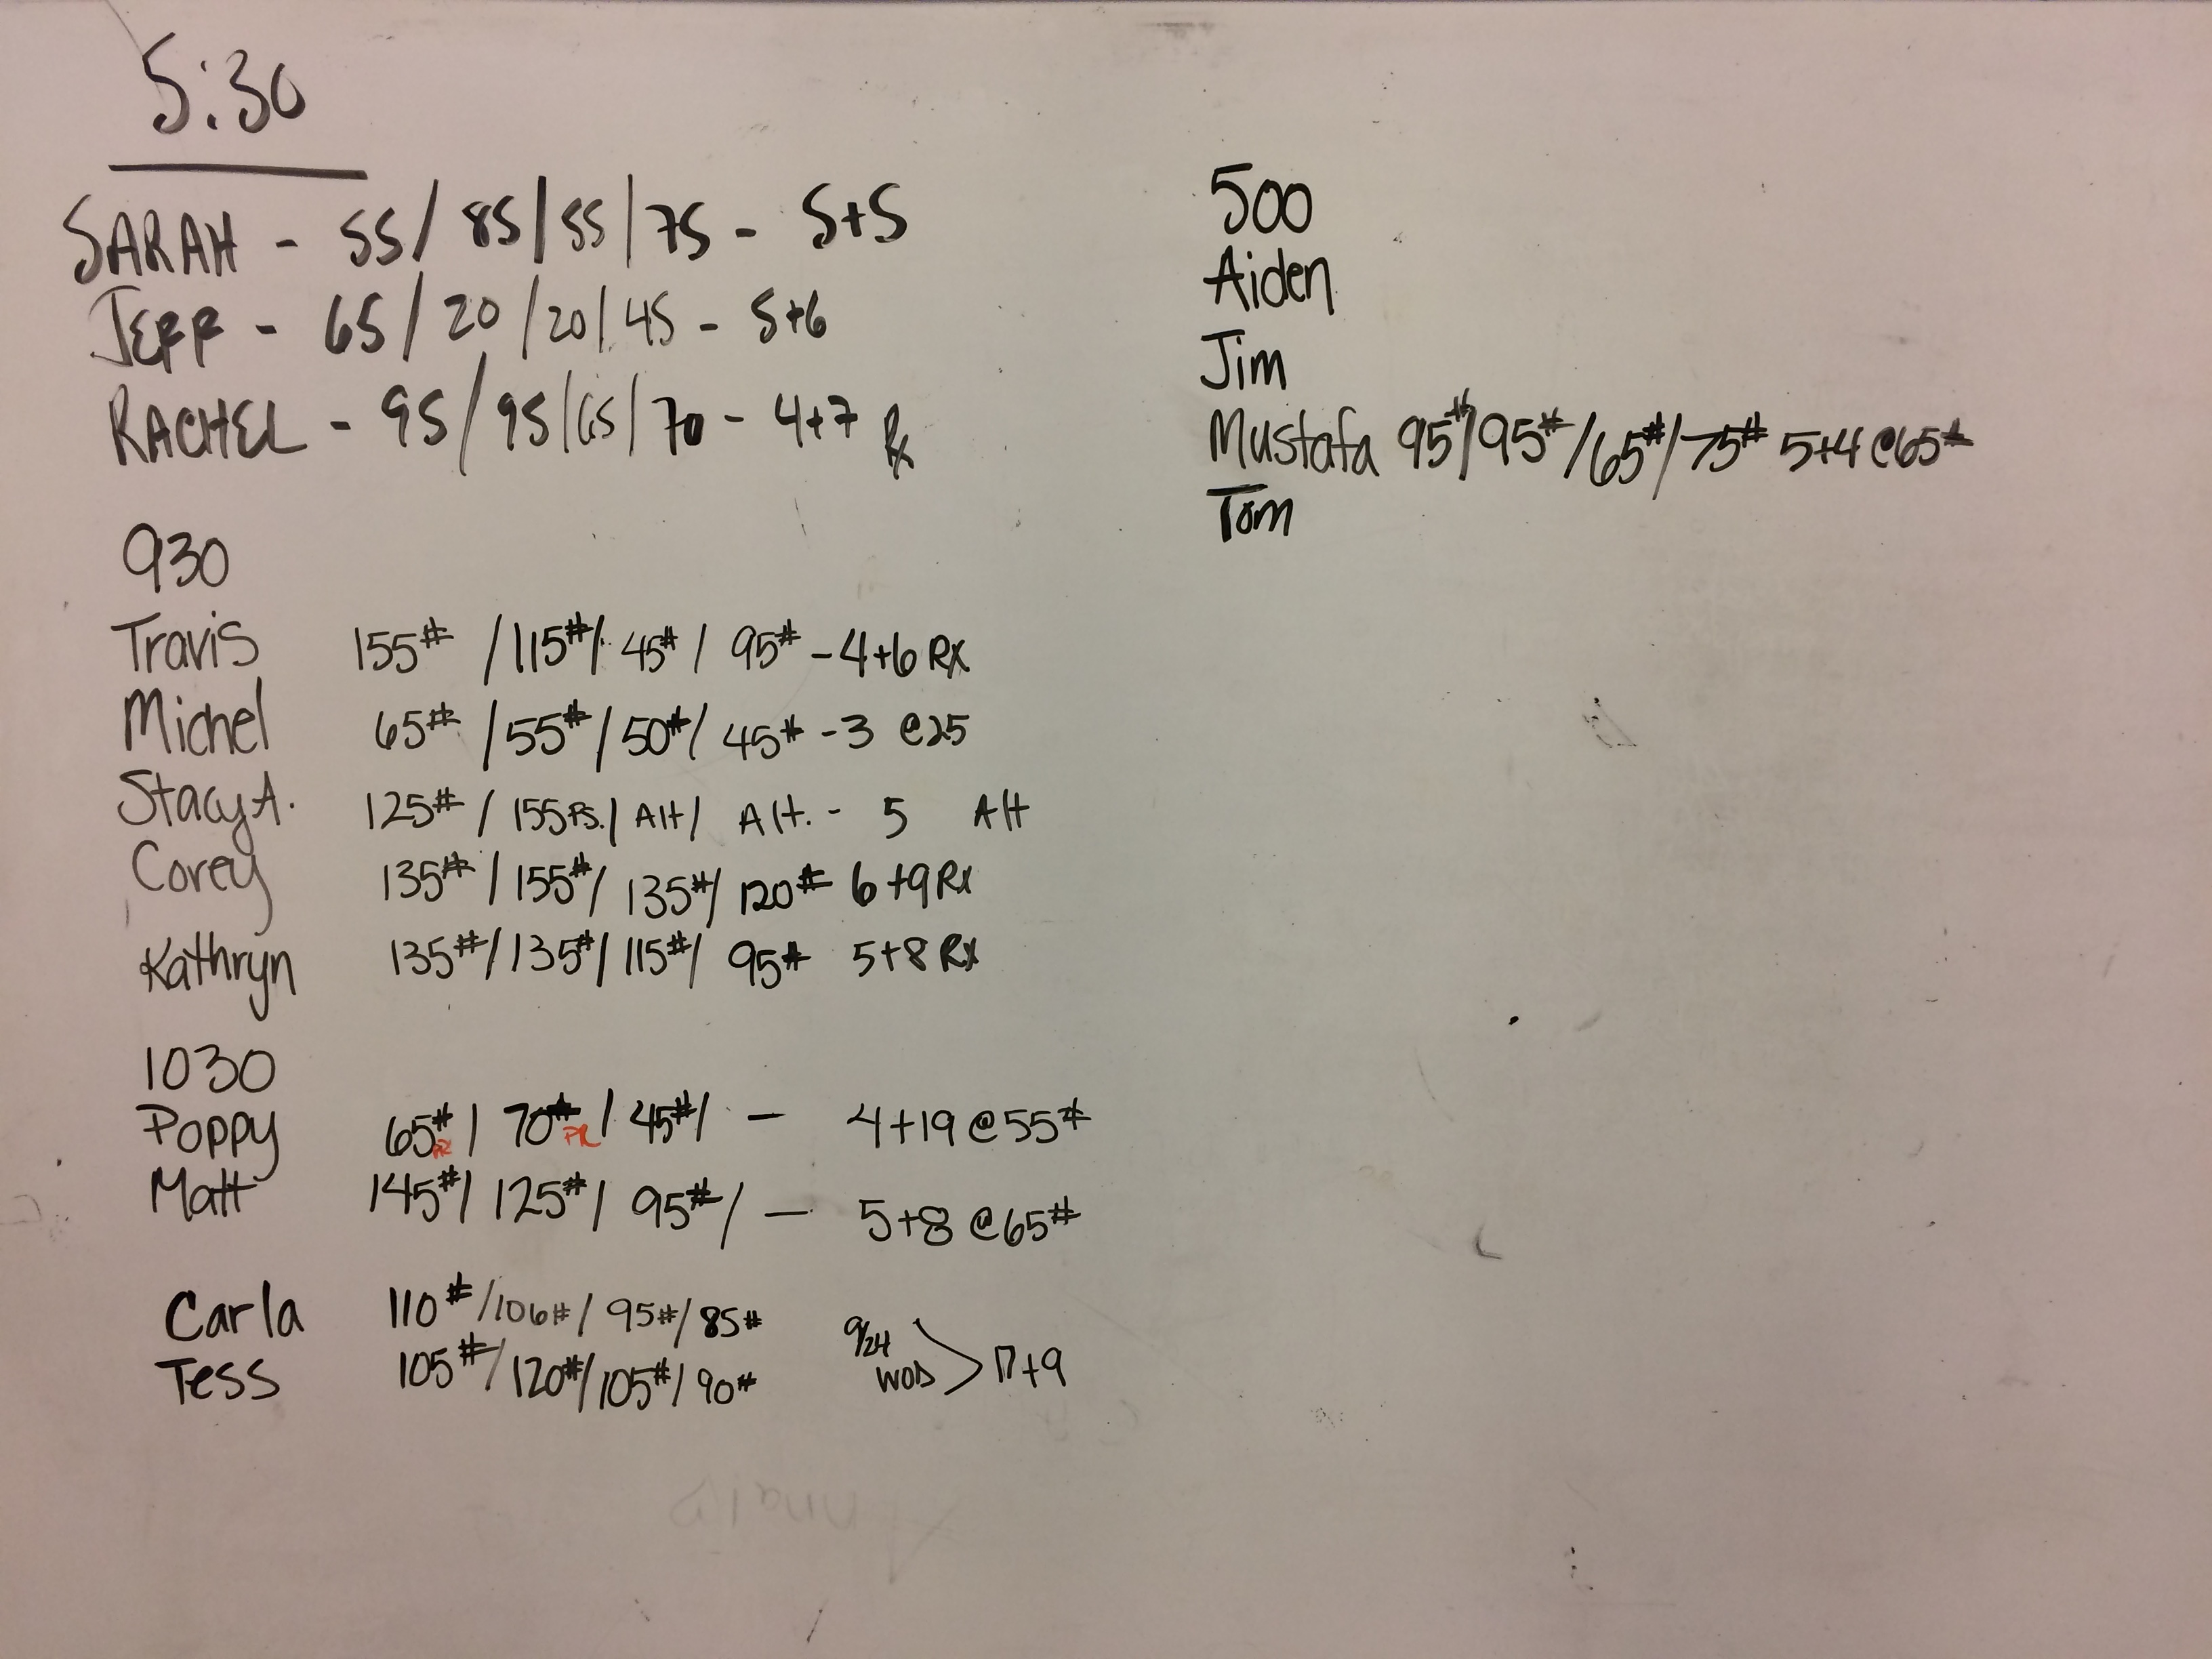 5:30
SARAH - 55 / 85 / 55 / 75 - 5+5
JEFF - 65 / 20 / 20 / 45 - 5+6
RACHEL - 95 / 95 / 65 / 70 - 4+7 Rx
930
Travis 155# / 115# / 45# / 95# - 4+6 Rx
Michel 65# / 55# / 50# / 45# - 3 @25
Stacy A. 125# / 155 PS. / Alt / Alt. - 5 Alt
Corey 135# / 155# / 135# / 120# 6+9 Rx
Kathryn 135# / 135# / 115# / 95# 5+8 Rx
1030
Poppy 65# PR / 70# PR / 45# / — 4+19 @55#
Matt 145# / 125# / 95# / — 5+8 @65#
Carla 110# / 106# / 95# / 85#
Tess 105# / 120# / 105# / 90#
9/24
WOD > 17+9
500
Aiden
Jim
Mustafa 95# / 95# / 65# / 75# 5+4 @65#
Tom